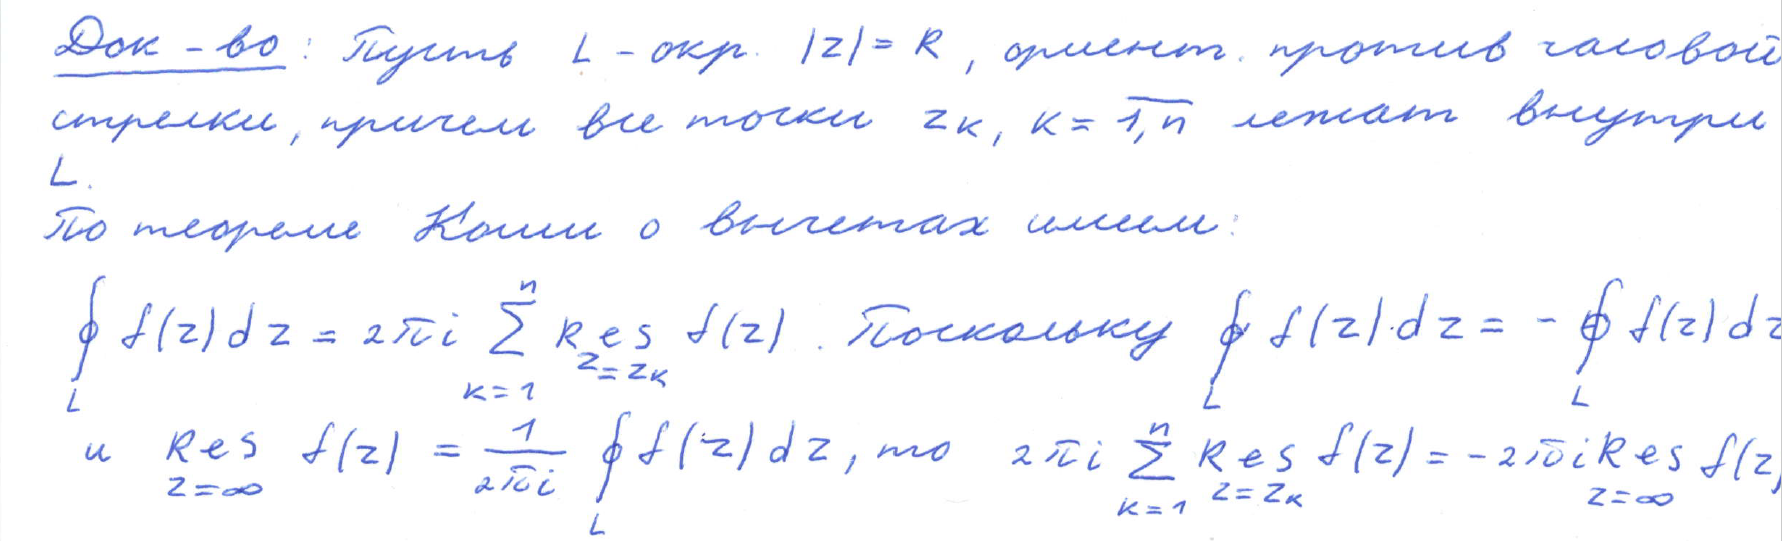 Док-во: Пусть L - окр. |z| = R, ориент. против часовой
стрелки, причем все точки zₖ, k = 1,n лежат внутри
L.
По теореме Коши о вычетах имеем:
∮_L f(z)dz = 2πi ∑_{k=1}^{n} Res_{z=zₖ} f(z). Поскольку ∮_L f(z)dz = - ∮_L f(z)dz
и Res_{z=∞} f(z) = 1/(2πi) ∮_L f(z)dz, то 2πi ∑_{k=1}^{n} Res_{z=zₖ} f(z) = -2πi Res_{z=∞} f(z)